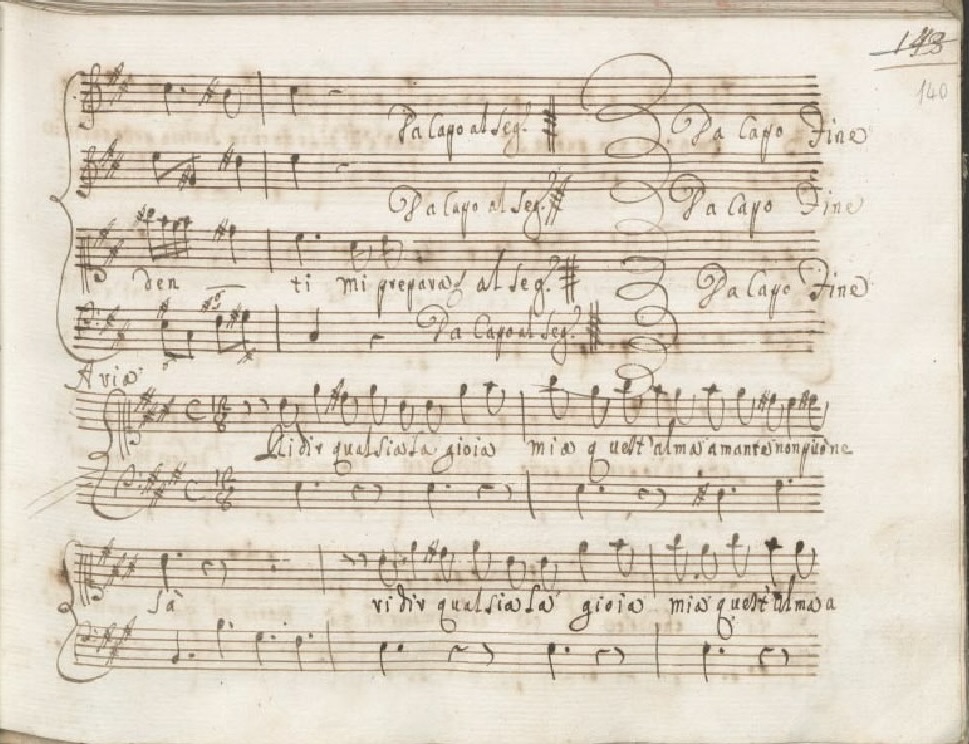 143
140
Da Capo al Seg.º Da Capo Fine
Da Capo al Seg.º Da Capo Fine
den ti mi prepara al Seg.º Da Capo Fine
Da Capo al Seg.º
Aria
Ridir qual sia la gioia mia quest'alma amante non può ne
sà ridir qual sia la gioia mia quest'alma a